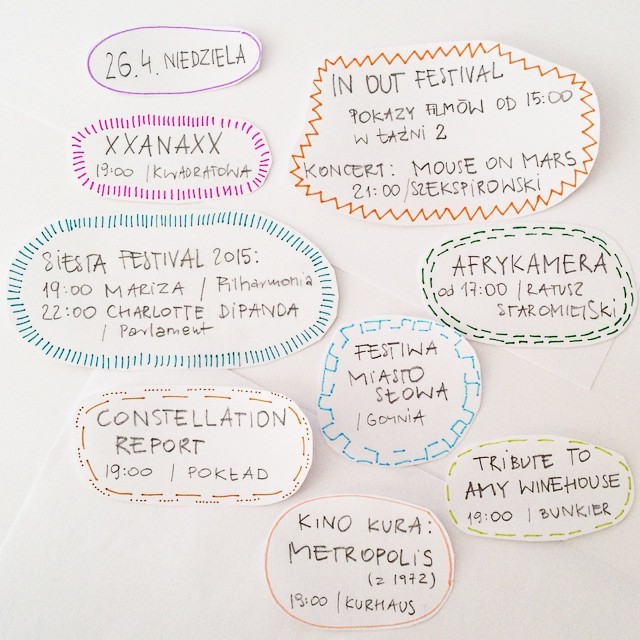 26.4. NIEDZIELA
IN OUT FESTIVAL
POKAZY FILMÓW OD 15:00
W ŁAŹNI 2
KONCERT: MOUSE ON MARS
21:00/SZEKSPIROWSKI
XXANAXX
19:00 /KWADRATOWA
SIESTA FESTIVAL 2015:
19:00 MARIZA / Filharmonia
22:00 CHARLOTTE DIPANDA
/ Parlament
AFRYKAMERA
od 17:00 /RATUSZ
STAROMIEJSKI
FESTIWA
MIASTO
SŁOWA
/GDYNIA
CONSTELLATION
REPORT
19:00 / POKŁAD
TRIBUTE TO
AMY WINEHOUSE
19:00 / BUNKIER
KINO KURA:
METROPOLIS
(z 1972)
19:00 /KURHAUS